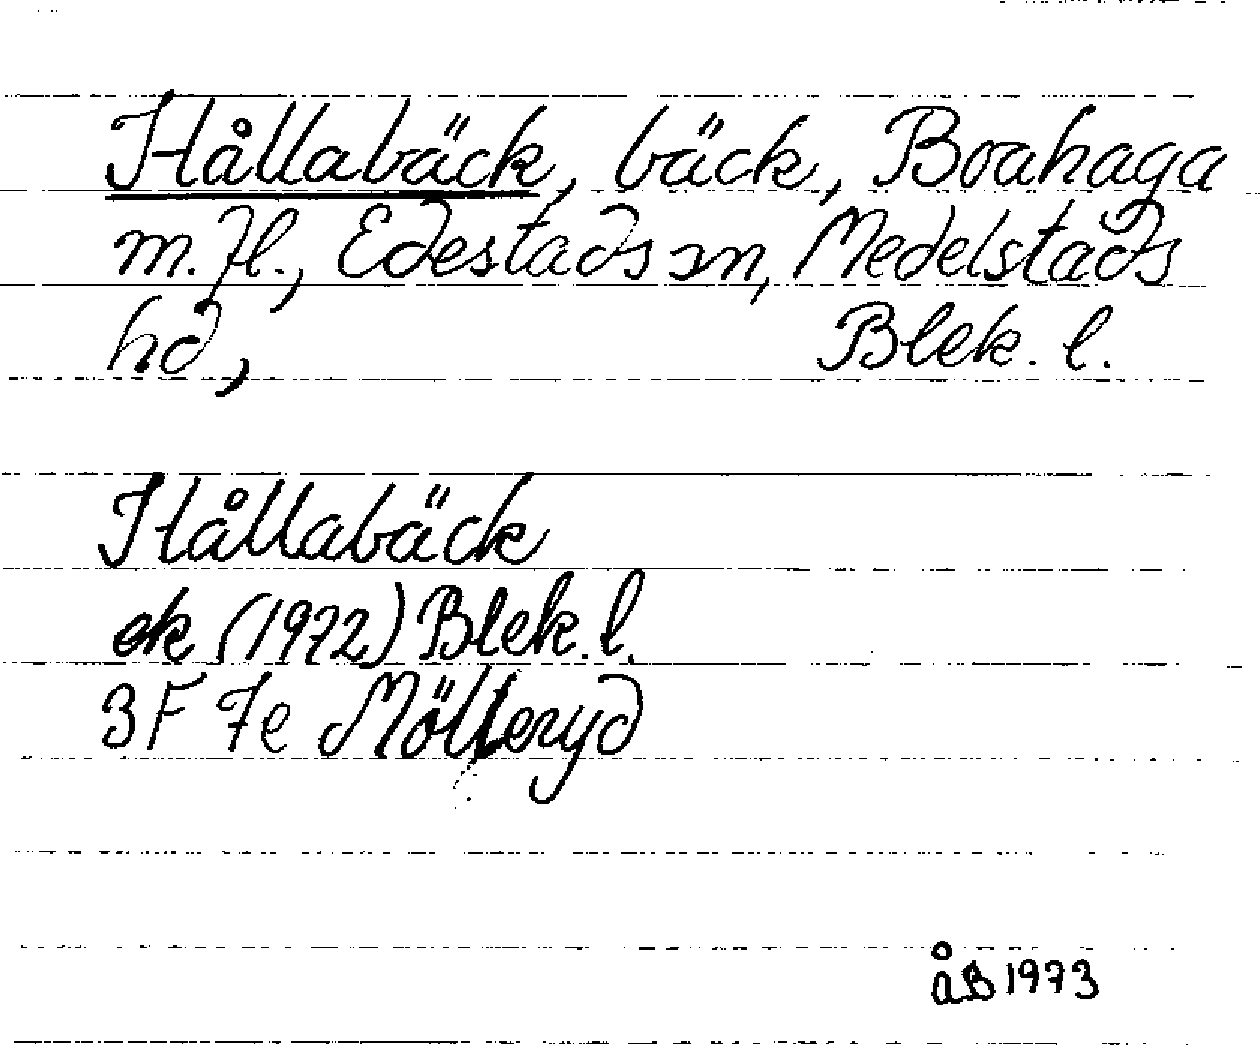 Hållabäck, bäck, Boahaga
m.fl., Edestads sn, Medelstads
hd, Blek. l.
Hållabäck
ek (1972) Blek. l.
3F 7e Mölleryd
åB 1973